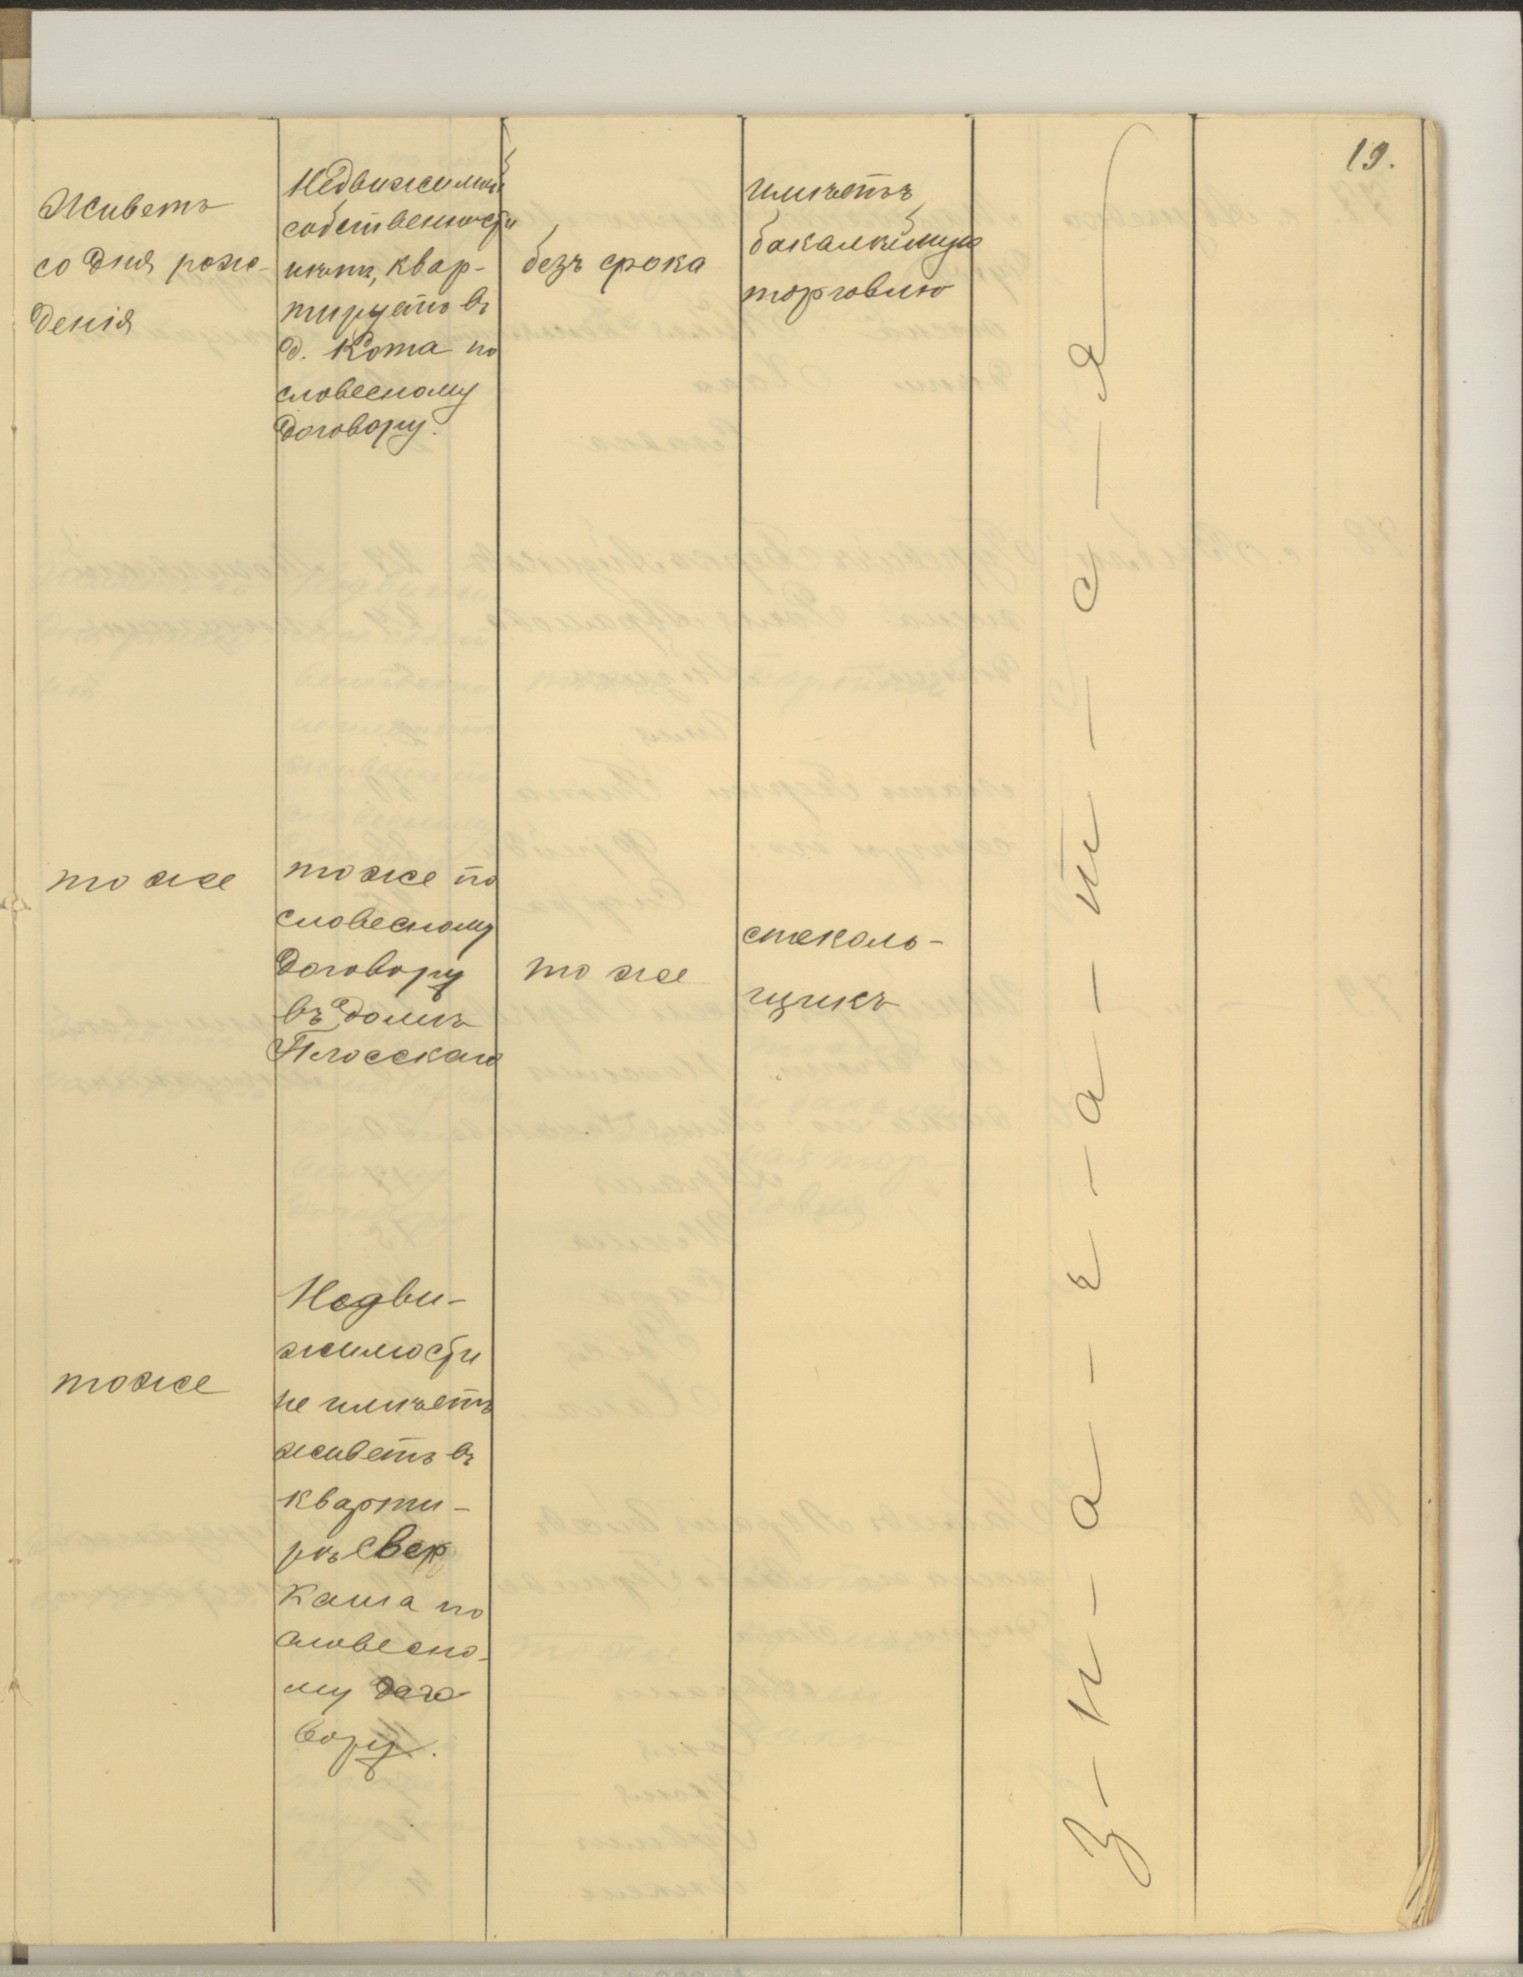 19.
Живетъ
со дня рож-
денія
Недвижимой
собственности
нетъ, квар-
тируетъ въ
д. Кота по
словесному
договору.
безъ срока
имѣетъ
бакалейную
торговлю
тоже
тоже по
словесному
договору
въ домѣ
Плосскаго
тоже
стеколь-
щикъ
тоже
Недви-
жимости
не имѣетъ
живетъ въ
кварти-
рѣ Свер
кана по
словесно-
му дого
вору.
З-н-а-ч-а-т-с-я